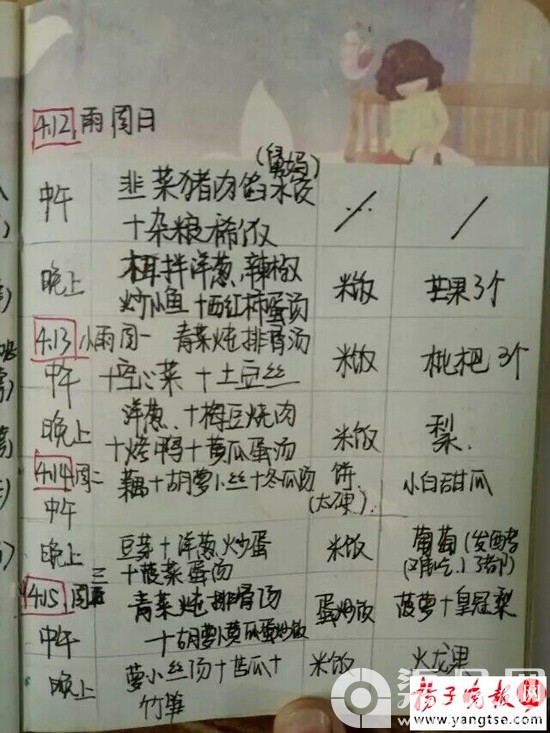 4.12 雨 周日
(舅妈)
中午 韭菜猪肉馅水饺 /
+杂粮稀饭
晚上 木耳拌洋葱、辣椒 米饭 芒果3个
炒小鱼+西红柿蛋汤
4.13 小雨 周一 青菜炖排骨汤 米饭 枇杷3个
中午 +空心菜+土豆丝
晚上 洋葱、+梅豆烧肉 米饭 梨
+烤鸭+黄瓜蛋汤
4.14 周二 藕+胡萝卜丝+冬瓜汤 饼. 小白甜瓜
中午 (太硬)
晚上 豆芽+洋葱炒蛋 米饭 葡萄
+菠菜蛋汤 (难吃.)
4.15. 周三 青菜炖排骨汤 蛋炒饭 菠萝+皇冠梨
中午 +胡萝卜黄瓜蛋炒饭
晚上 萝卜丝汤+苦瓜+ 米饭 火龙果
竹笋
扬子晚报网
www.yangtse.com